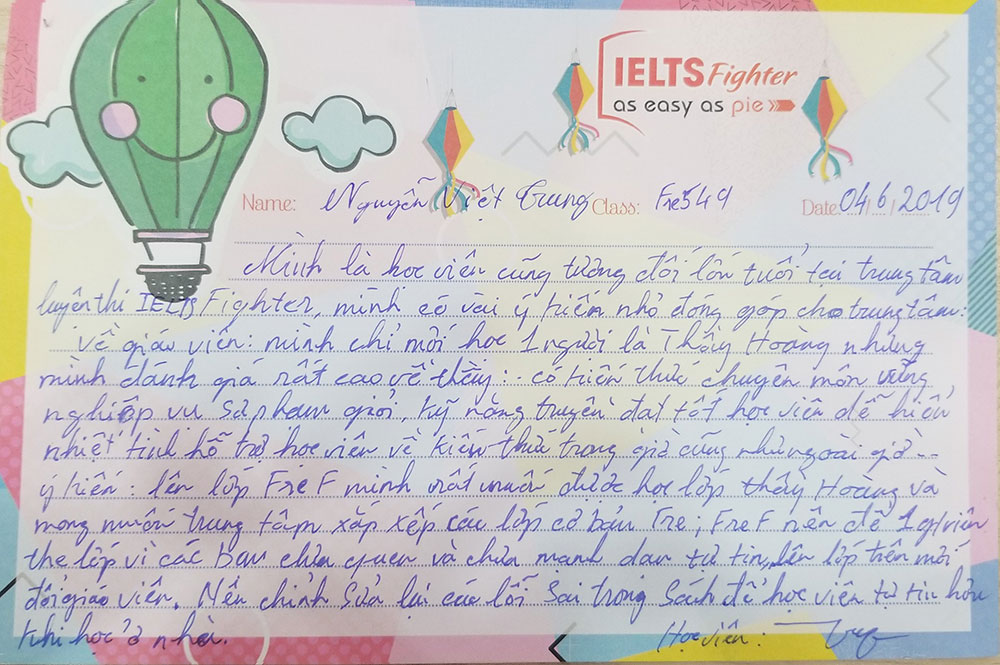 IELTS Fighter
as easy as pie
Name: Nguyễn Việt Trung Class: Fre549 Date: 04/6/2019
Mình là học viên cũng tương đối lớn tuổi tại trung tâm
luyện thi IELTS Fighter, mình có vài ý kiến nhỏ đóng góp cho trung tâm:
Về giáo viên: mình chỉ mới học 1 người là Thầy Hoàng nhưng
mình đánh giá rất cao về thầy: có kiến thức chuyên môn vững
nghiệp vụ sư phạm giỏi, kỹ năng truyền đạt tốt học viên dễ hiểu
nhiệt tình hỗ trợ học viên về kiến thức trong giờ cũng như ngoài giờ...
ý kiến: lên lớp Fre F mình rất muốn được học lớp thầy Hoàng và
mong muốn trung tâm xắp xếp các lớp cơ bản Fre; Fre F nên để 1 g/viên
the lớp vì các bạn chưa quen và chưa mạnh dạn tự tin, lên lớp trên mới
đổi giáo viên. Nên chỉnh sửa lại các lỗi sai trong sách để học viên tự tin hơn
khi học ở nhà. Học viên: